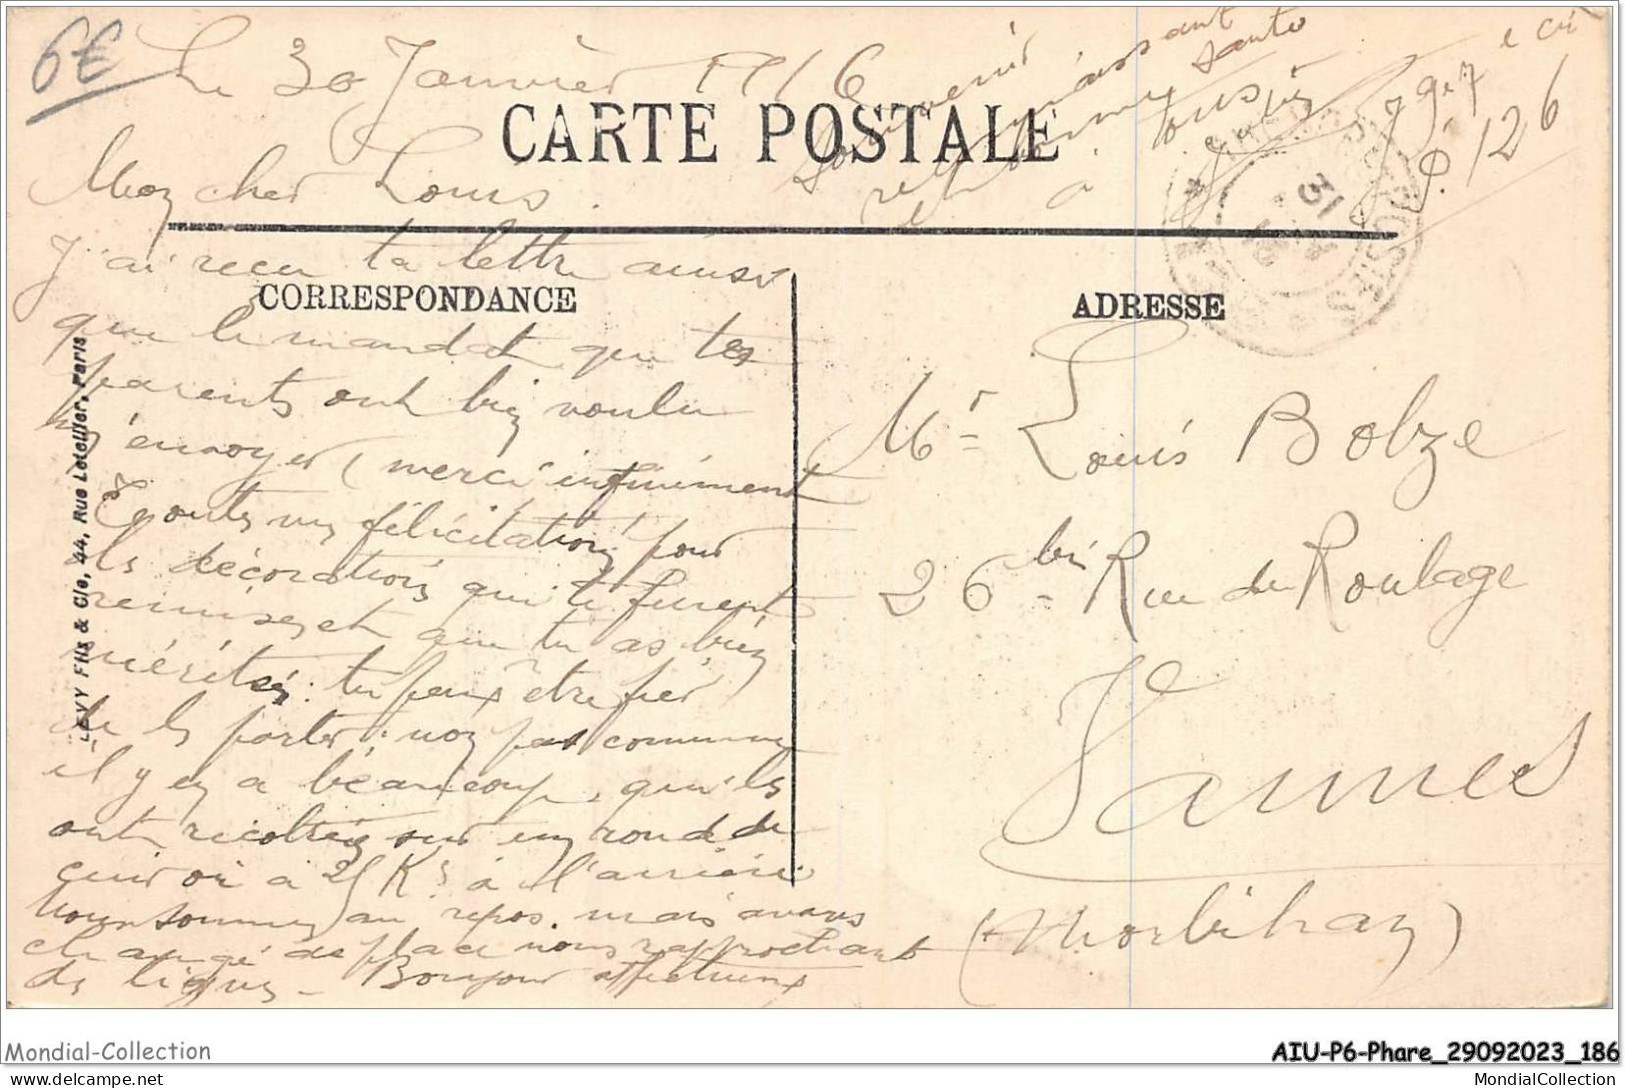 6€
Le 30 Janvier 1916
Souvenir
reconnaissant
et bonne santé
à tous
P. 126
CARTE POSTALE
Mon cher Louis.
J'ai reçu ta lettre ainsi
CORRESPONDANCE
ADRESSE
que le mandat que tes
parents ont bien voulu
m'envoyer (merci infiniment
félicitations pour
les décorations qui te furent
remises et que tu as bien
méritées: tu peux être fier
de les porter; non pas comme
il y en a beaucoup, qu'ils
ont récoltées sur un rond de
cuir où à 25 Ks à l'arrière
nous sommes au repos. mais avons
changé de place nous rapprochant
de lignes - Bonjour affectueux
LEVY Fils & Cie, 44, Rue Letellier, Paris
31
Mr Louis Bobze
26 bis Rue du Roulage
Vannes
(Morbihan)
Mondial-Collection
AIU-P6-Phare_29092023_186
MondialCollection